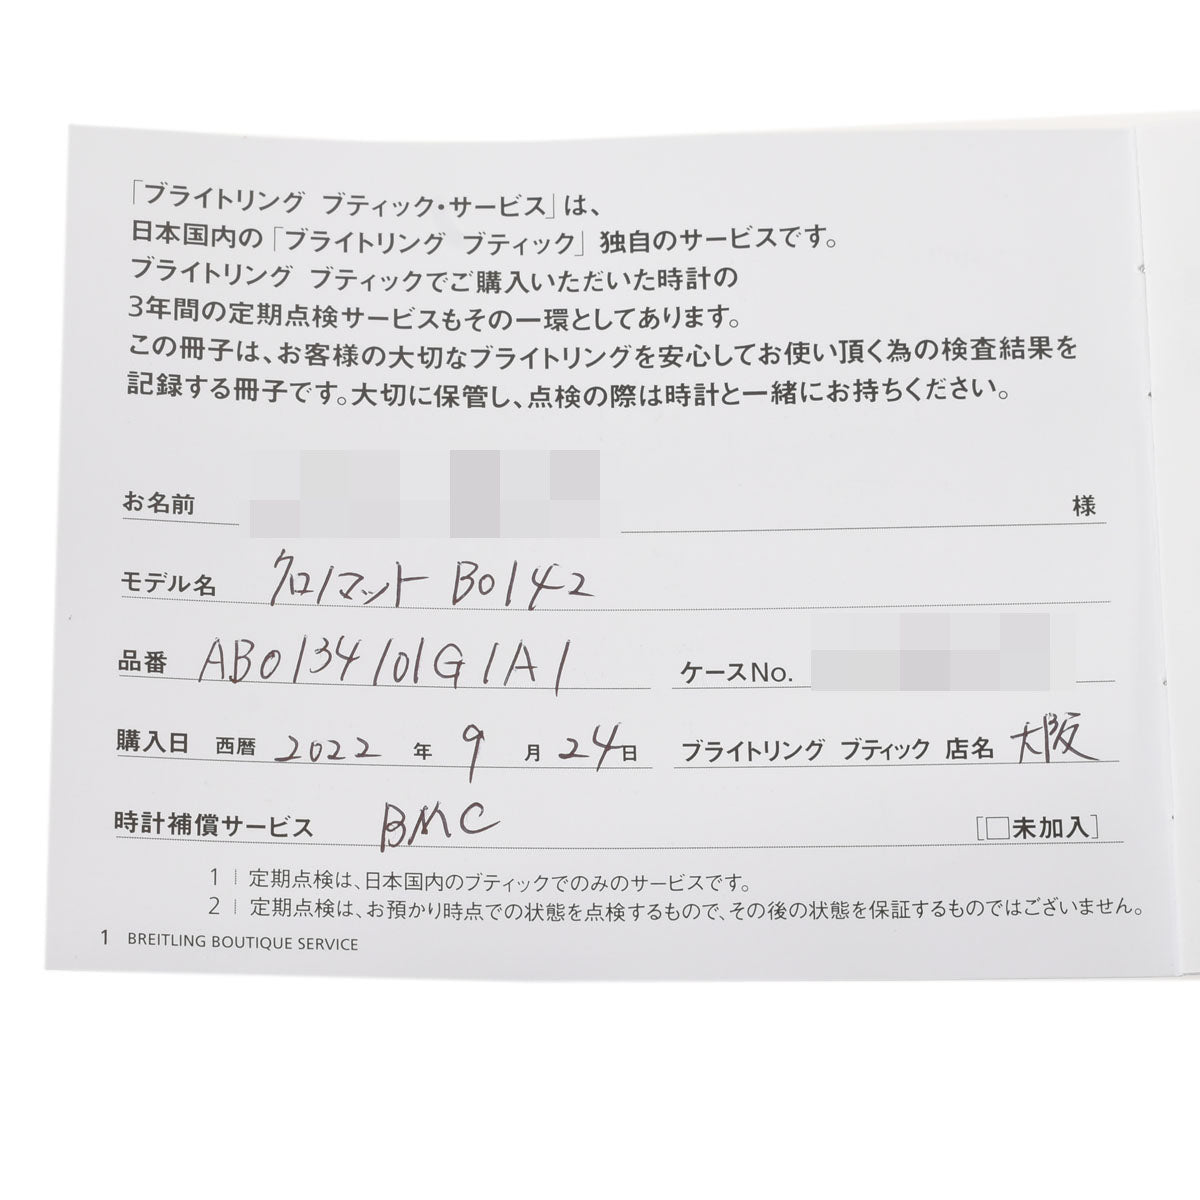 「ブライトリング ブティック・サービス」は、
日本国内の「ブライトリング ブティック」独自のサービスです。
ブライトリング ブティックでご購入いただいた時計の
3年間の定期点検サービスもその一環としてあります。
この冊子は、お客様の大切なブライトリングを安心してお使い頂く為の検査結果を
記録する冊子です。大切に保管し、点検の際は時計と一緒にお持ちください。
お名前 様
モデル名 クロノマット B0142
品番 AB0134101G1A1 ケースNo.
購入日 西暦 2022 年 9 月 24 日 ブライトリング ブティック 店名 大阪
時計補償サービス BMC [□未加入]
1 | 定期点検は、日本国内のブティックでのみのサービスです。
2 | 定期点検は、お預かり時点での状態を点検するもので、その後の状態を保証するものではございません。
1 BREITLING BOUTIQUE SERVICE